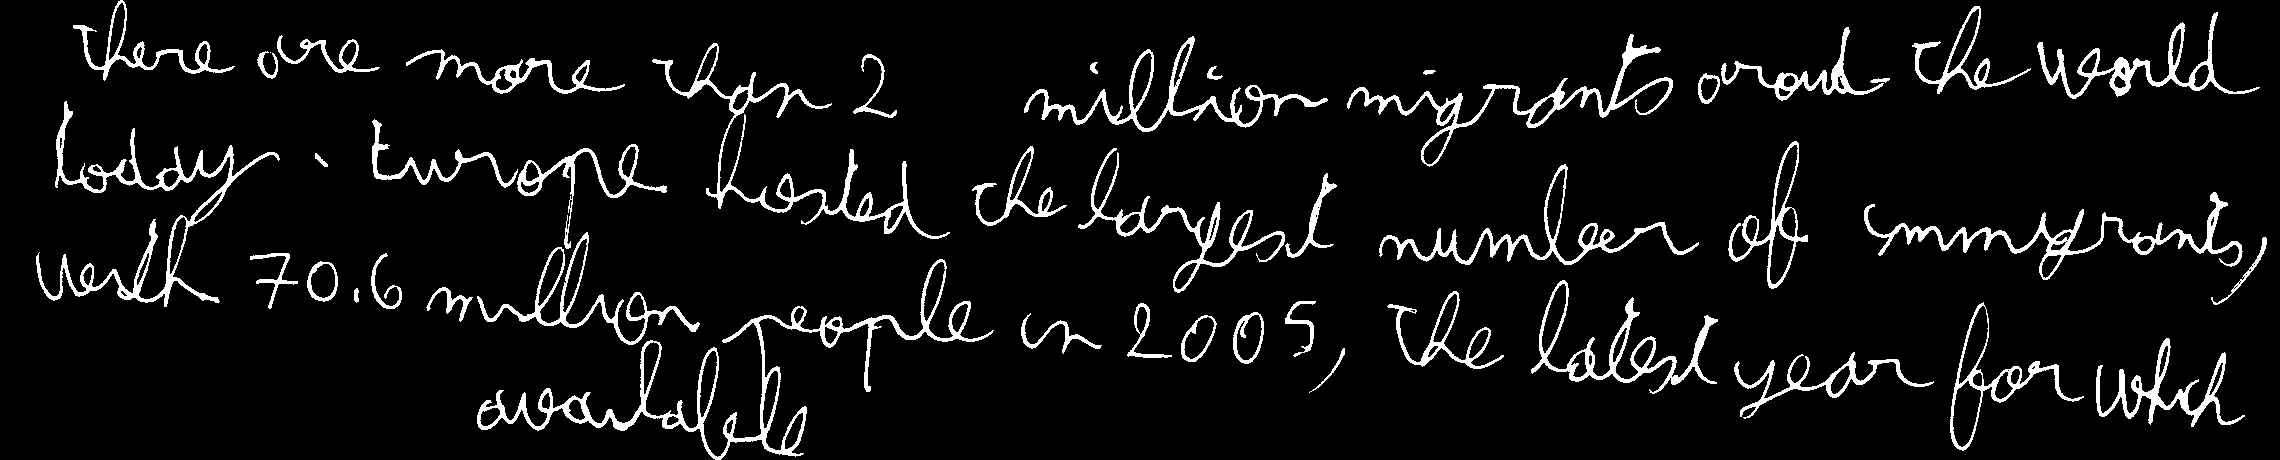 there are more than 2 million migrants aroud the world
today. Europe hosted the largest number of immigrants,
with 70.6 million people in 2005, the latest year for which
available